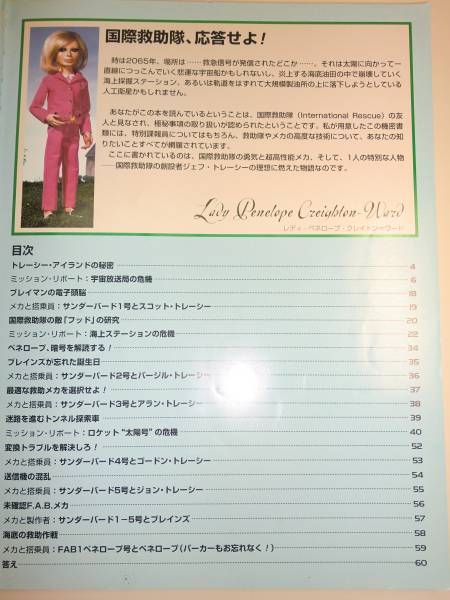 国際救助隊、応答せよ!
時は2065年、場所は……救急信号が発信されたどこか……。それは太陽に向かって一
直線につっこんでいく悲運な宇宙船かもしれないし、炎上する海底油田の中で崩壊していく
海上採掘ステーション、あるいは軌道をはずれて大規模製油所の上に落下しようとしている
人工衛星かもしれません。
あなたがこの本を読んでいるということは、国際救助隊(International Rescue)の友
人と見なされ、極秘事項の取り扱いが認められたということです。私が用意したこの機密書
類には、特別諜報員についてはもちろん、救助隊やメカの高度な技術について、あなたの知
りたいことすべてが網羅されています。
ここに書かれているのは、国際救助隊の勇気と超高性能メカ、そして、1人の特別な人物
——国際救助隊の創設者ジェフ・トレーシーの理想に燃えた物語なのです。
Lady Penelope Creighton-Ward
レディ・ペネロープ・クレイトン=ワード
目次
トレーシー・アイランドの秘密 4
ミッション・リポート:宇宙放送局の危機 6
ブレイマンの電子頭脳 18
メカと搭乗員:サンダーバード1号とスコット・トレーシー 19
国際救助隊の敵「フッド」の研究 20
ミッション・リポート:海上ステーションの危機 22
ペネロープ、暗号を解読する! 34
ブレインズが忘れた誕生日 35
メカと搭乗員:サンダーバード2号とバージル・トレーシー 36
最適な救助メカを選択せよ! 37
メカと搭乗員:サンダーバード3号とアラン・トレーシー 38
迷路を進むトンネル探索車 39
ミッション・リポート:ロケット“太陽号”の危機 40
変換トラブルを解決しろ! 52
メカと搭乗員:サンダーバード4号とゴードン・トレーシー 53
送信機の混乱 54
メカと搭乗員:サンダーバード5号とジョン・トレーシー 55
未確認F.A.B.メカ 56
メカと製作者:サンダーバード1−5号とブレインズ 57
海底の救助作戦 58
メカと搭乗員:FAB1ペネロープ号とペネロープ(パーカーもお忘れなく!) 59
答え 60